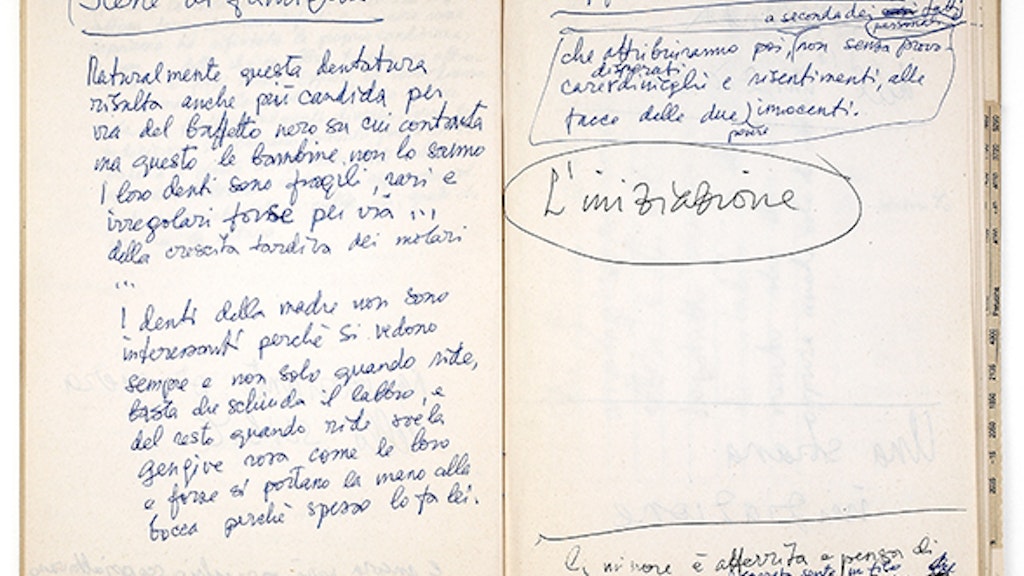 Scene di famiglia
Naturalmente questa dentatura
risalta anche più candida per
via del baffetto nero su cui contrasta
ma questo le bambine non lo sanno
I loro denti sono fragili, rari e
irregolari forse per via ...
della crescita tardiva dei molari
...
I denti della madre non sono
interessanti perchè si vedono
sempre e non solo quando ride,
basta che schiuda il labbro, e
del resto quando ride svela
gengive rosa come le loro
e forse si portano la mano alla
bocca perchè spesso lo fa lei.
a seconda dei fatti
che attribuiranno poi, non senza prove
disperati
e risentimenti, alle
facce delle due innocenti.
povere
L'iniziazione
minore è atterrita e pensa di